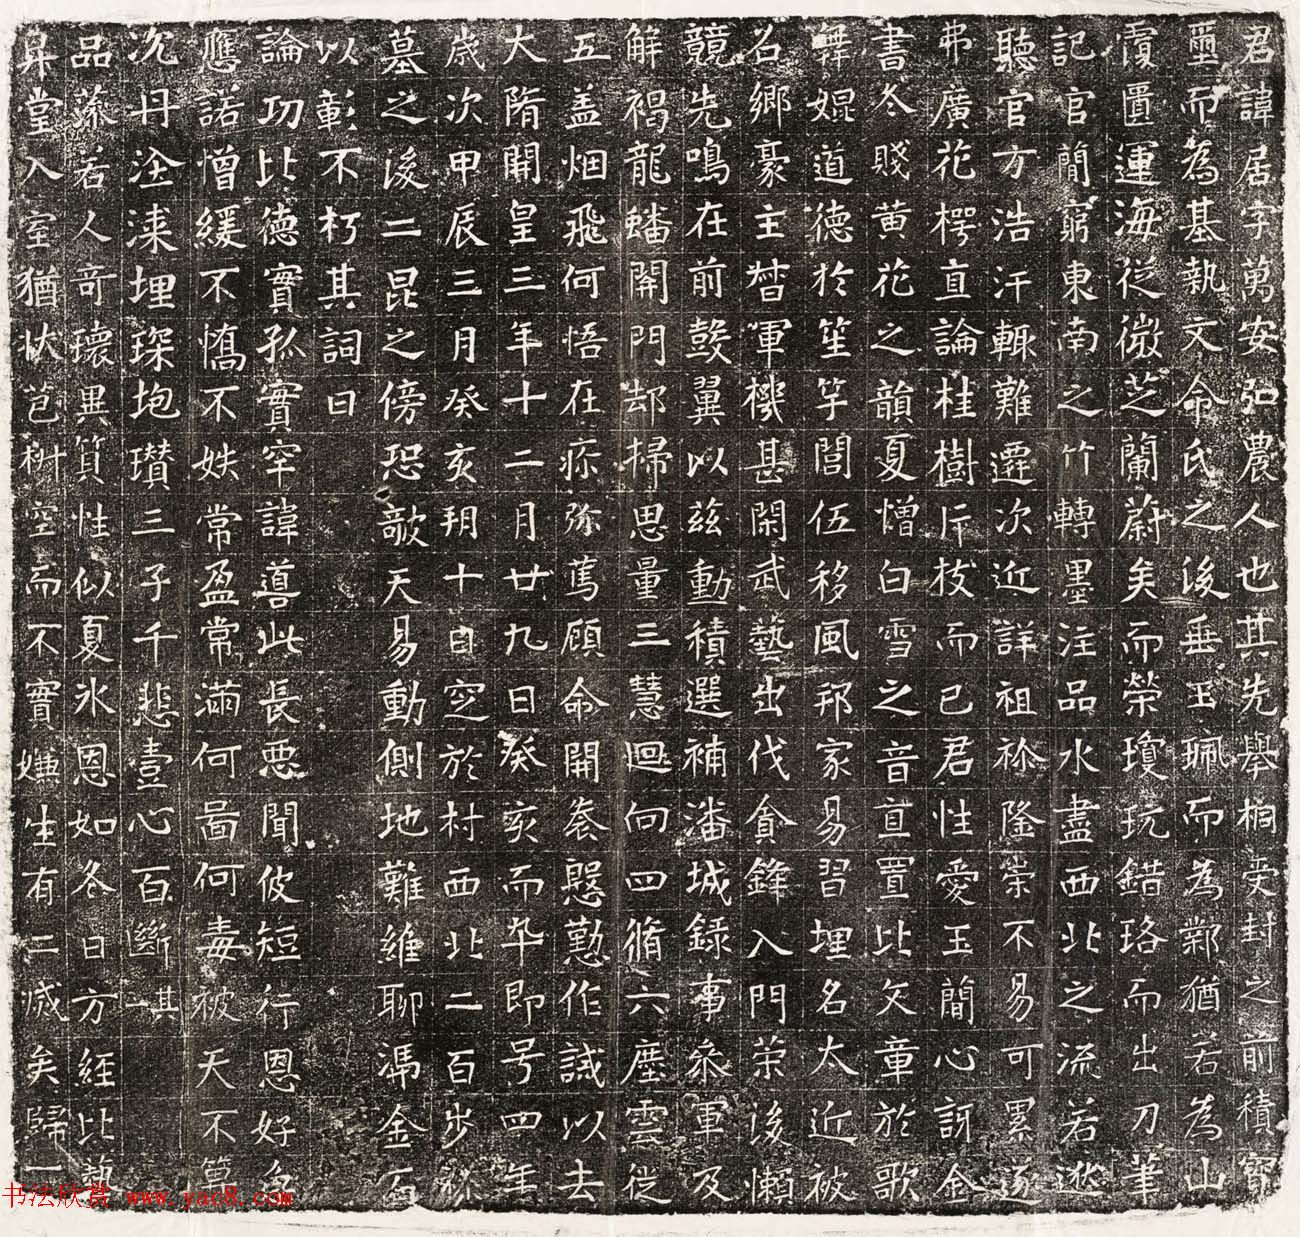 君諱居字萬安弘農人也其先舉桐受封之前積寶
璽而為基執文命氏之後垂玉珮而為鄴猶若為山
覆匱運海從微芝蘭蔚矣而榮瓊玩錯珞而出刀筆
記官簡窮東南之竹轉墨注品水盡西北之流若逖
聽官方浩汗輒難遷次近詳祖祢隆崇不易可累逐
弗廣花樗直論桂樹片枝而已君性愛玉簡心訝金
書冬賤黃花之韻夏憎白雪之音直置比文章於歌
舞婫道德於笙竽閭伍移風邦家易習埋名太近被
名鄉豪主幫軍機甚閑武藝出伐貪鋒入門榮後懶
競先鳴在前鼓翼以茲動積選補潘城錄事參軍及
解褐龍蟠開門却掃思量三慧迴向四脩六塵雲從
五盖烟飛何悟在疹弥篤顧命開養慇懃作誡以去
大隋開皇三年十二月廿九日癸亥而卒即号四年
歲次甲辰三月癸亥朔十日空於村西北二百步
墓之後二昆之傍恐敲天易動側地難維聊馮金石
以彰不朽其詞曰
論功比德實孤實罕諱噵此長惡聞彼短行恩好
應諾憎緩不憍不妷常盈常滿何啚何毒被天不算
沉丹淦溱埋琛抱瓚三子千悲壹心百斷其
品藻若人奇瓌異質性似夏冰恩如冬日方經比藝
昇堂入室猶狀芭枡空而不實嫌生有二滅矣歸一
书法欣赏 www.yac8.com